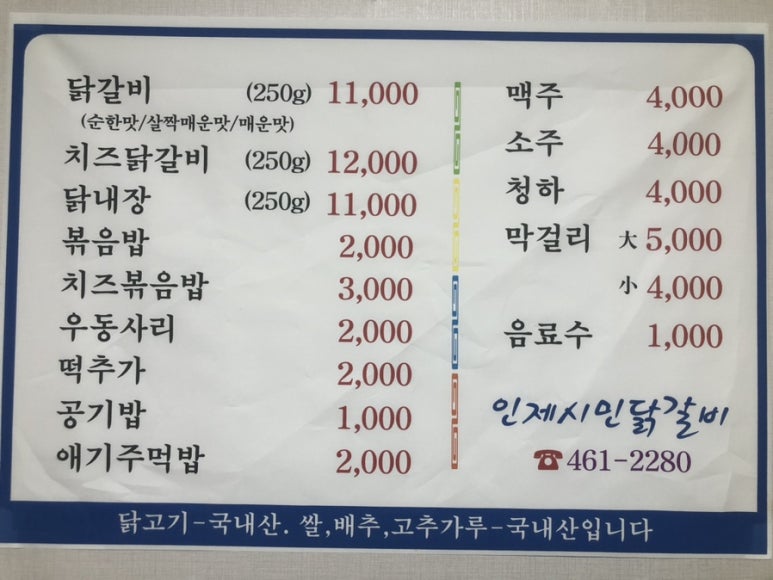 닭갈비 (250g) 11,000
(순한맛/살짝매운맛/매운맛)
치즈닭갈비 (250g) 12,000
닭내장 (250g) 11,000
볶음밥 2,000
치즈볶음밥 3,000
우동사리 2,000
떡추가 2,000
공기밥 1,000
애기주먹밥 2,000
맥주 4,000
소주 4,000
청하 4,000
막걸리 大 5,000
小 4,000
음료수 1,000
인제시민닭갈비
☎461-2280
닭고기-국내산. 쌀,배추,고추가루-국내산입니다